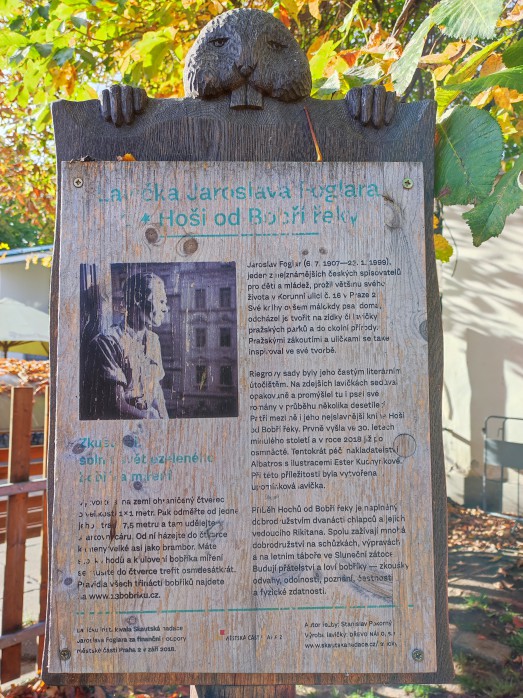 Lavička Jaroslava Foglara
Hoši od Bobří řeky
Jaroslav Foglar (6. 7. 1907—23. 1. 1999),
jeden z nejznámějších českých spisovatelů
pro děti a mládež, prožil většinu svého
života v Korunní ulici č. 16 v Praze 2.
Své knihy ovšem málokdy psal doma,
odcházel je tvořit na zídky či lavičky
pražských parků a do okolní přírody.
Pražskými zákoutími a uličkami se také
inspiroval ve své tvorbě.
Riegrovy sady byly jeho častým literárním
útočištěm. Na zdejších lavičkách sedával
opakovaně a promýšlel tu i psal své
romány v průběhu několika desetiletí.
Patří mezi ně i jeho nejslavnější kniha Hoši
od Bobří řeky. Prvně vyšla ve 30. letech
minulého století a v roce 2018 již po
osmnácté. Tentokrát péčí nakladatelství
Albatros s ilustracemi Ester Kuchynkové.
Při této příležitosti byla vytvořena
lavička.
Příběh Hochů od Bobří řeky je napínavý
dobrodružstvím dvanácti chlapců a jejich
vedoucího Rikitana. Spolu zažívají mnohá
dobrodružství na schůzkách, výpravách
a na letním táboře ve Sluneční zátoce.
Budují přátelství a loví bobříky — zkoušky
odvahy, odolnosti, poznání, čestnosti
a fyzické zdatnosti.
Zkuste
splnit zeleného
bobříka míření
na zemi ohraničený čtverec
o velikosti 1×1 metr. Pak odměřte od jedné
jeho 7,5 metru a tam udělejte
čáru. Od ní házejte do čtverce
kameny velké asi jako brambor. Máte
hodů a k ulovení bobříka míření
musíte do čtverce trefit osmdesátkrát.
Pravidla všech třinácti bobříků najdete
na www.13bobriku.cz.
Lavičku Skautská nadace
Jaroslava Foglara za finanční podpory
městské části Praha 2 v září 2018.
MĚSTSKÁ ČÁST PRAHA 2
Autor řezby: Stanislav Pokorný
Výroba lavičky: DŘEVO NÁS
www.skautskanadace.cz